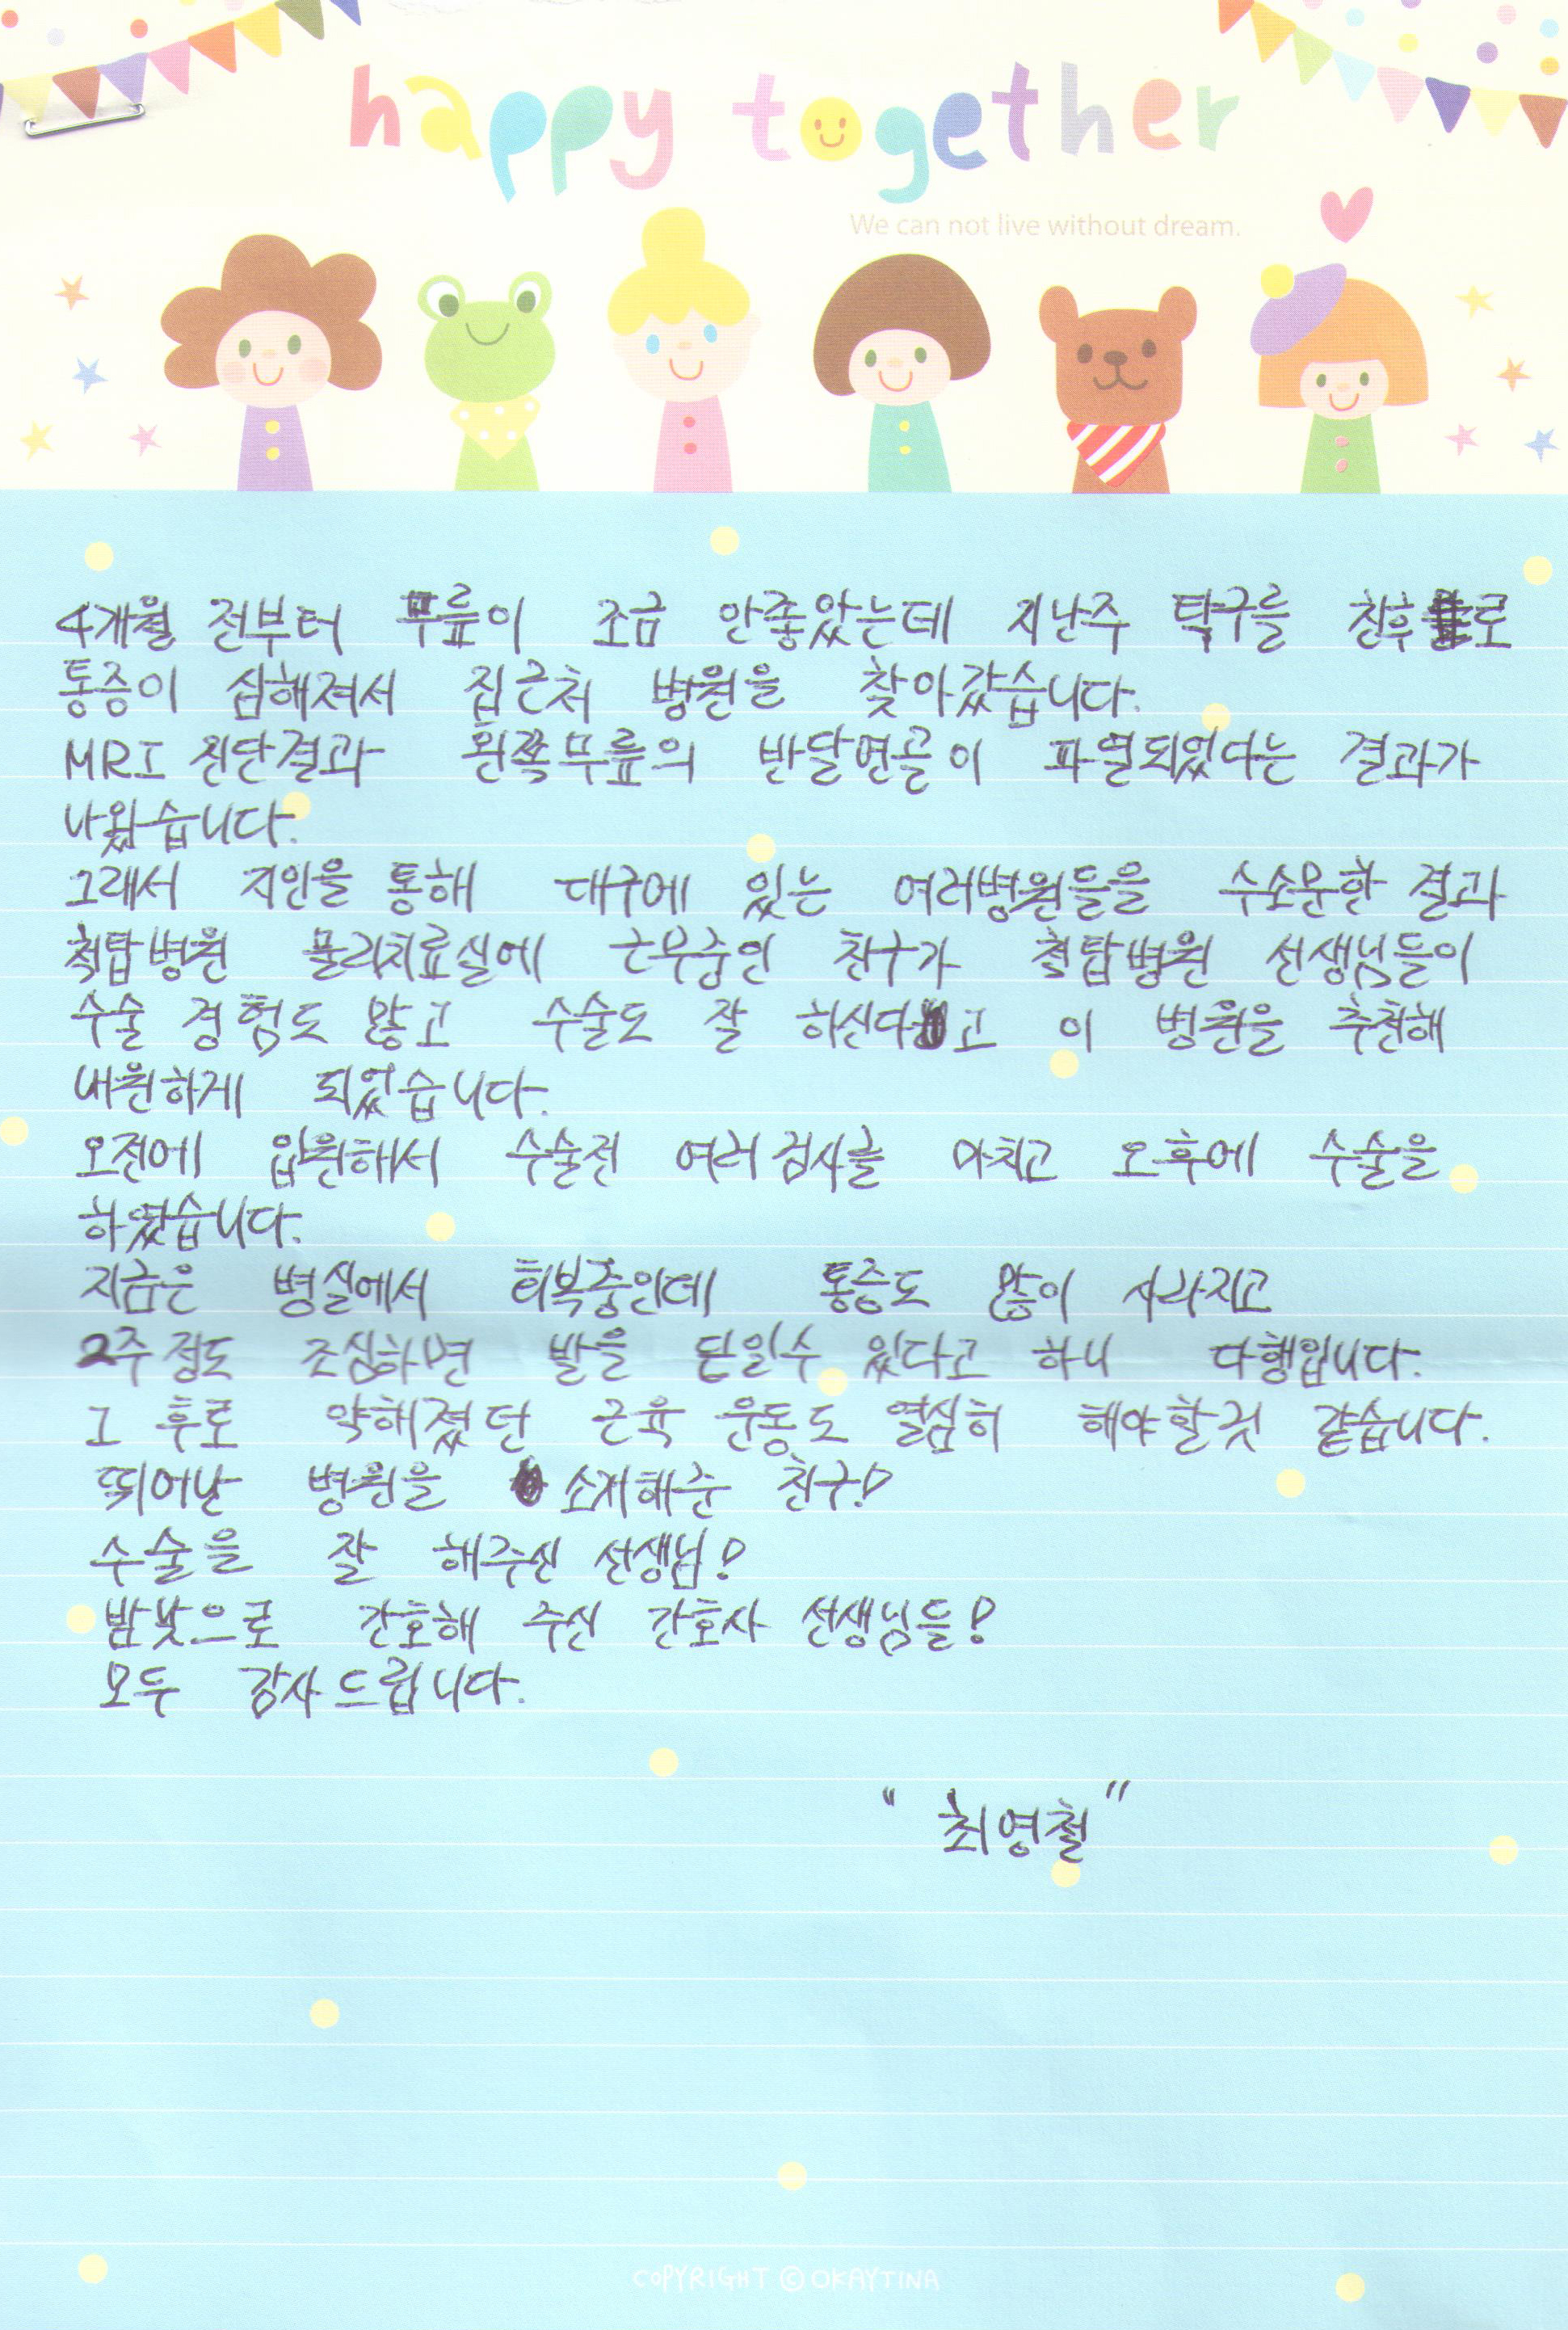 happy together
We can not live without dream.
4개월 전부터 무릎이 조금 안좋았는데 지난주 탁구를 친후로
통증이 심해져서 집근처 병원을 찾아갔습니다.
MRI 진단결과 왼쪽무릎의 반달연골이 파열되었다는 결과가
나왔습니다.
그래서 지인을 통해 대구에 있는 여러병원들을 수소문한 결과
척탑병원 물리치료실에 근무중인 친구가 척탑병원 선생님들이
수술 경험도 많고 수술도 잘 하신다고 이 병원을 추천해
내원하게 되었습니다.
오전에 입원해서 수술전 여러검사를 마치고 오후에 수술을
하였습니다.
지금은 병실에서 회복중인데 통증도 많이 사라지고
2주정도 조심하면 발을 딛일수 있다고 하니 다행입니다.
그 후로 약해졌던 근육 운동도 열심히 해야할것 같습니다.
띄어난 병원을 소개해준 친구!
수술을 잘 해주신 선생님!
밤낮으로 간호해 주신 간호사 선생님들!
모두 감사드립니다.
"최영철"
COPYRIGHT © OKAYTINA